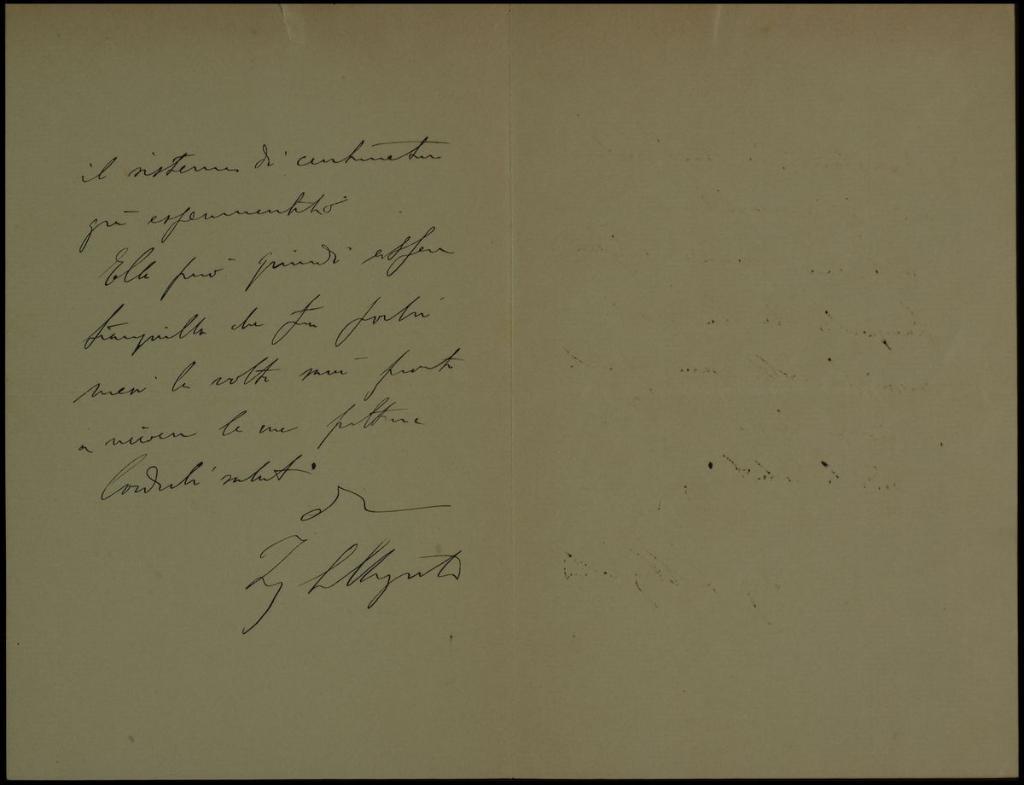 il sistema di centinatura
già esperimentato
Ella può quindi essere
tranquilla che fra pochi
mesi la volta sarà pronta
a ricevere le sue pitture
Cordiali saluti